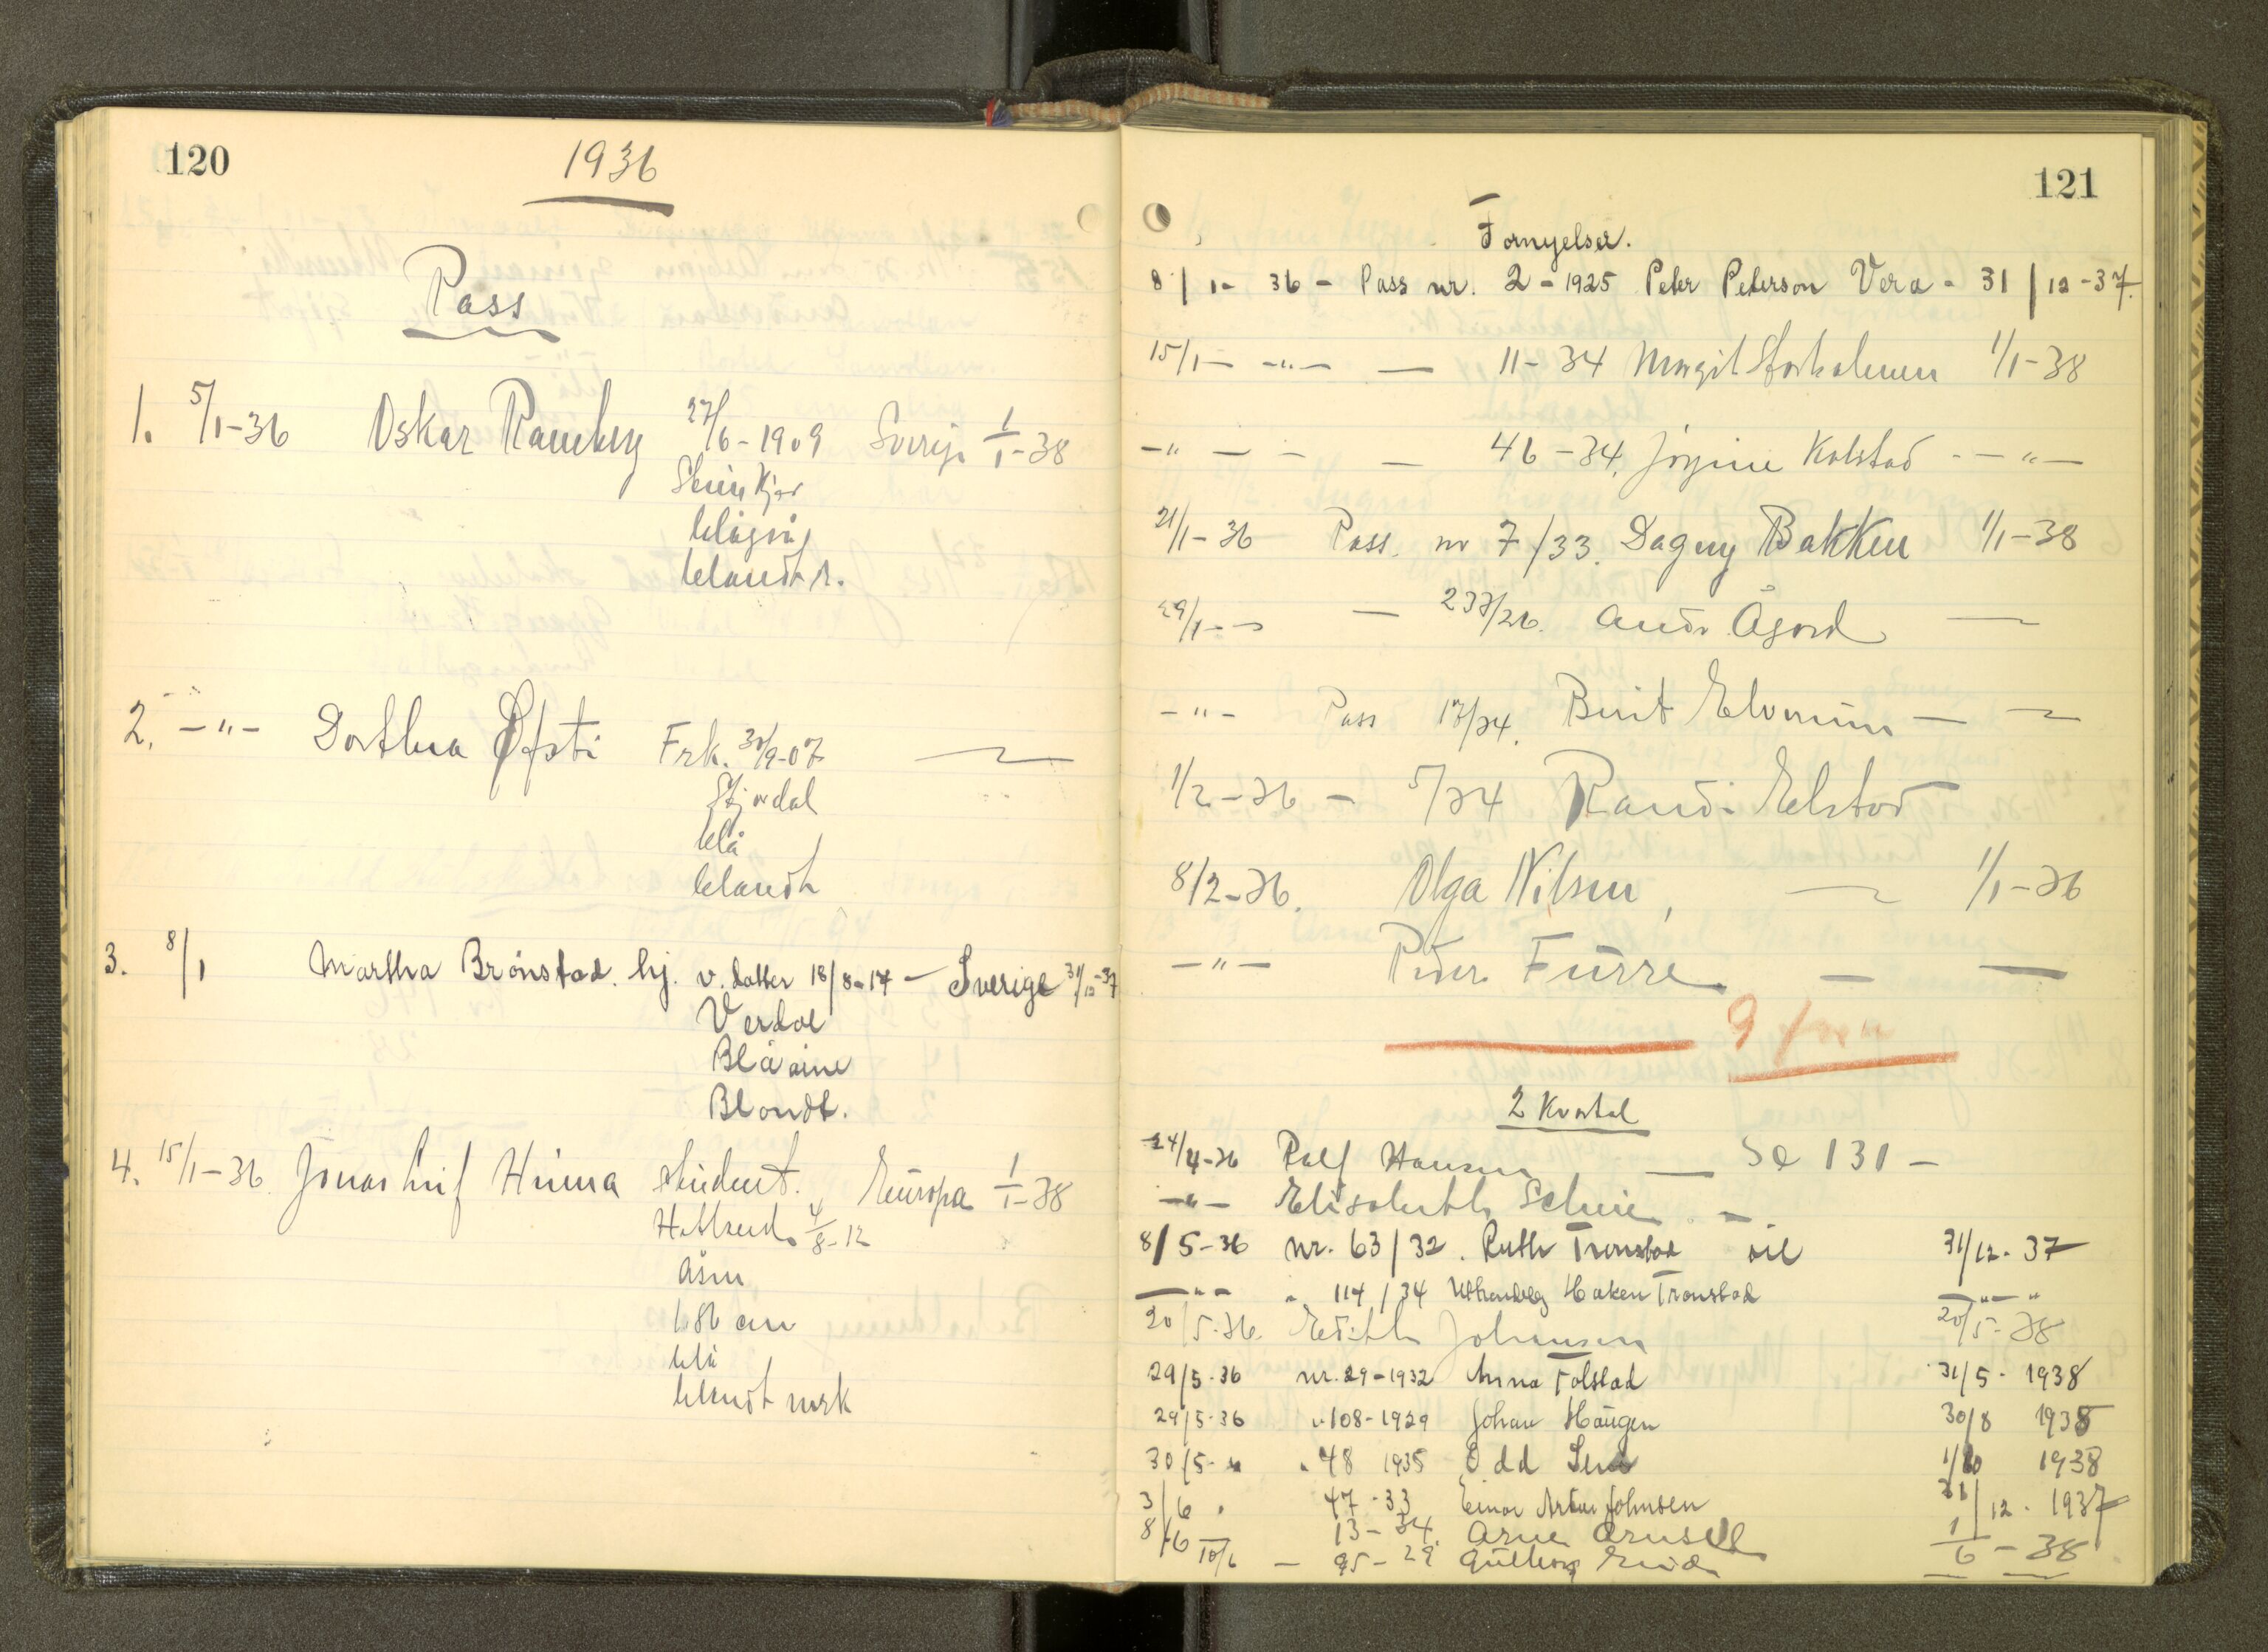 120
1936
Pass
1. 5/1-36 Oskar Ramberg 27/6-1909 Sverige 1/1-38
Steinkjer
blågrå
blondt h.
2. -"- Dorthea Øfsti Frk. 30/9-07
Stjørdal
blå
blondt
3. 8/1 Martha Brønstad. hj. v. datter 18/8-17 - Sverige 31/12-37
Verdal
Blå øine
Blondt.
4. 15/1-36 Jonas Leif Huma student. Europa 1/1-38
4/8-12
Åsen
1.86 cm
blå
blondt mørk
121
Fornyelser.
8/1-36 - Pass nr. 2-1925 Peter Peterson Vera - 31/12-37.
15/1- -"- - 11-34 Margit Storholmen 1/1-38
-"- - - - 46-34. Jørgine Kolstad - - "-
21/1-36 Pass. nr 7/33. Dagny Bakken 1/1-38
29/1-- - 237/26. Andr. Ågård -
-"- Pass 17/34. Berit Elverum -
1/2-36 - 5/34 Randi Elstad
8/2-36. Olga Nilsen, 1/1-36
-"- Peder Furre - -
9
2 Kvartal
24/4-36 Rolf Hansen - Se 131 -
-"- Elisabeth -
8/5-36 nr. 63/32. Ruth Tronstad til 31/12-37
-"- " 114/34 Haken Tronstad -"-
20/5-36. Edith Johansen 20/5-38
29/5-36 nr. 29-1932 Anna Tolstad 31/5-1938
29/5-36 " 108-1929 Johan Haugen 30/8 1938
30/5-" " 48 1935 Odd 1938
3/6 " 47-33 Einar Artur Johnsen 31/12-1937
8/6 13-34. Arne 1/6-38
10/6 - 95-29